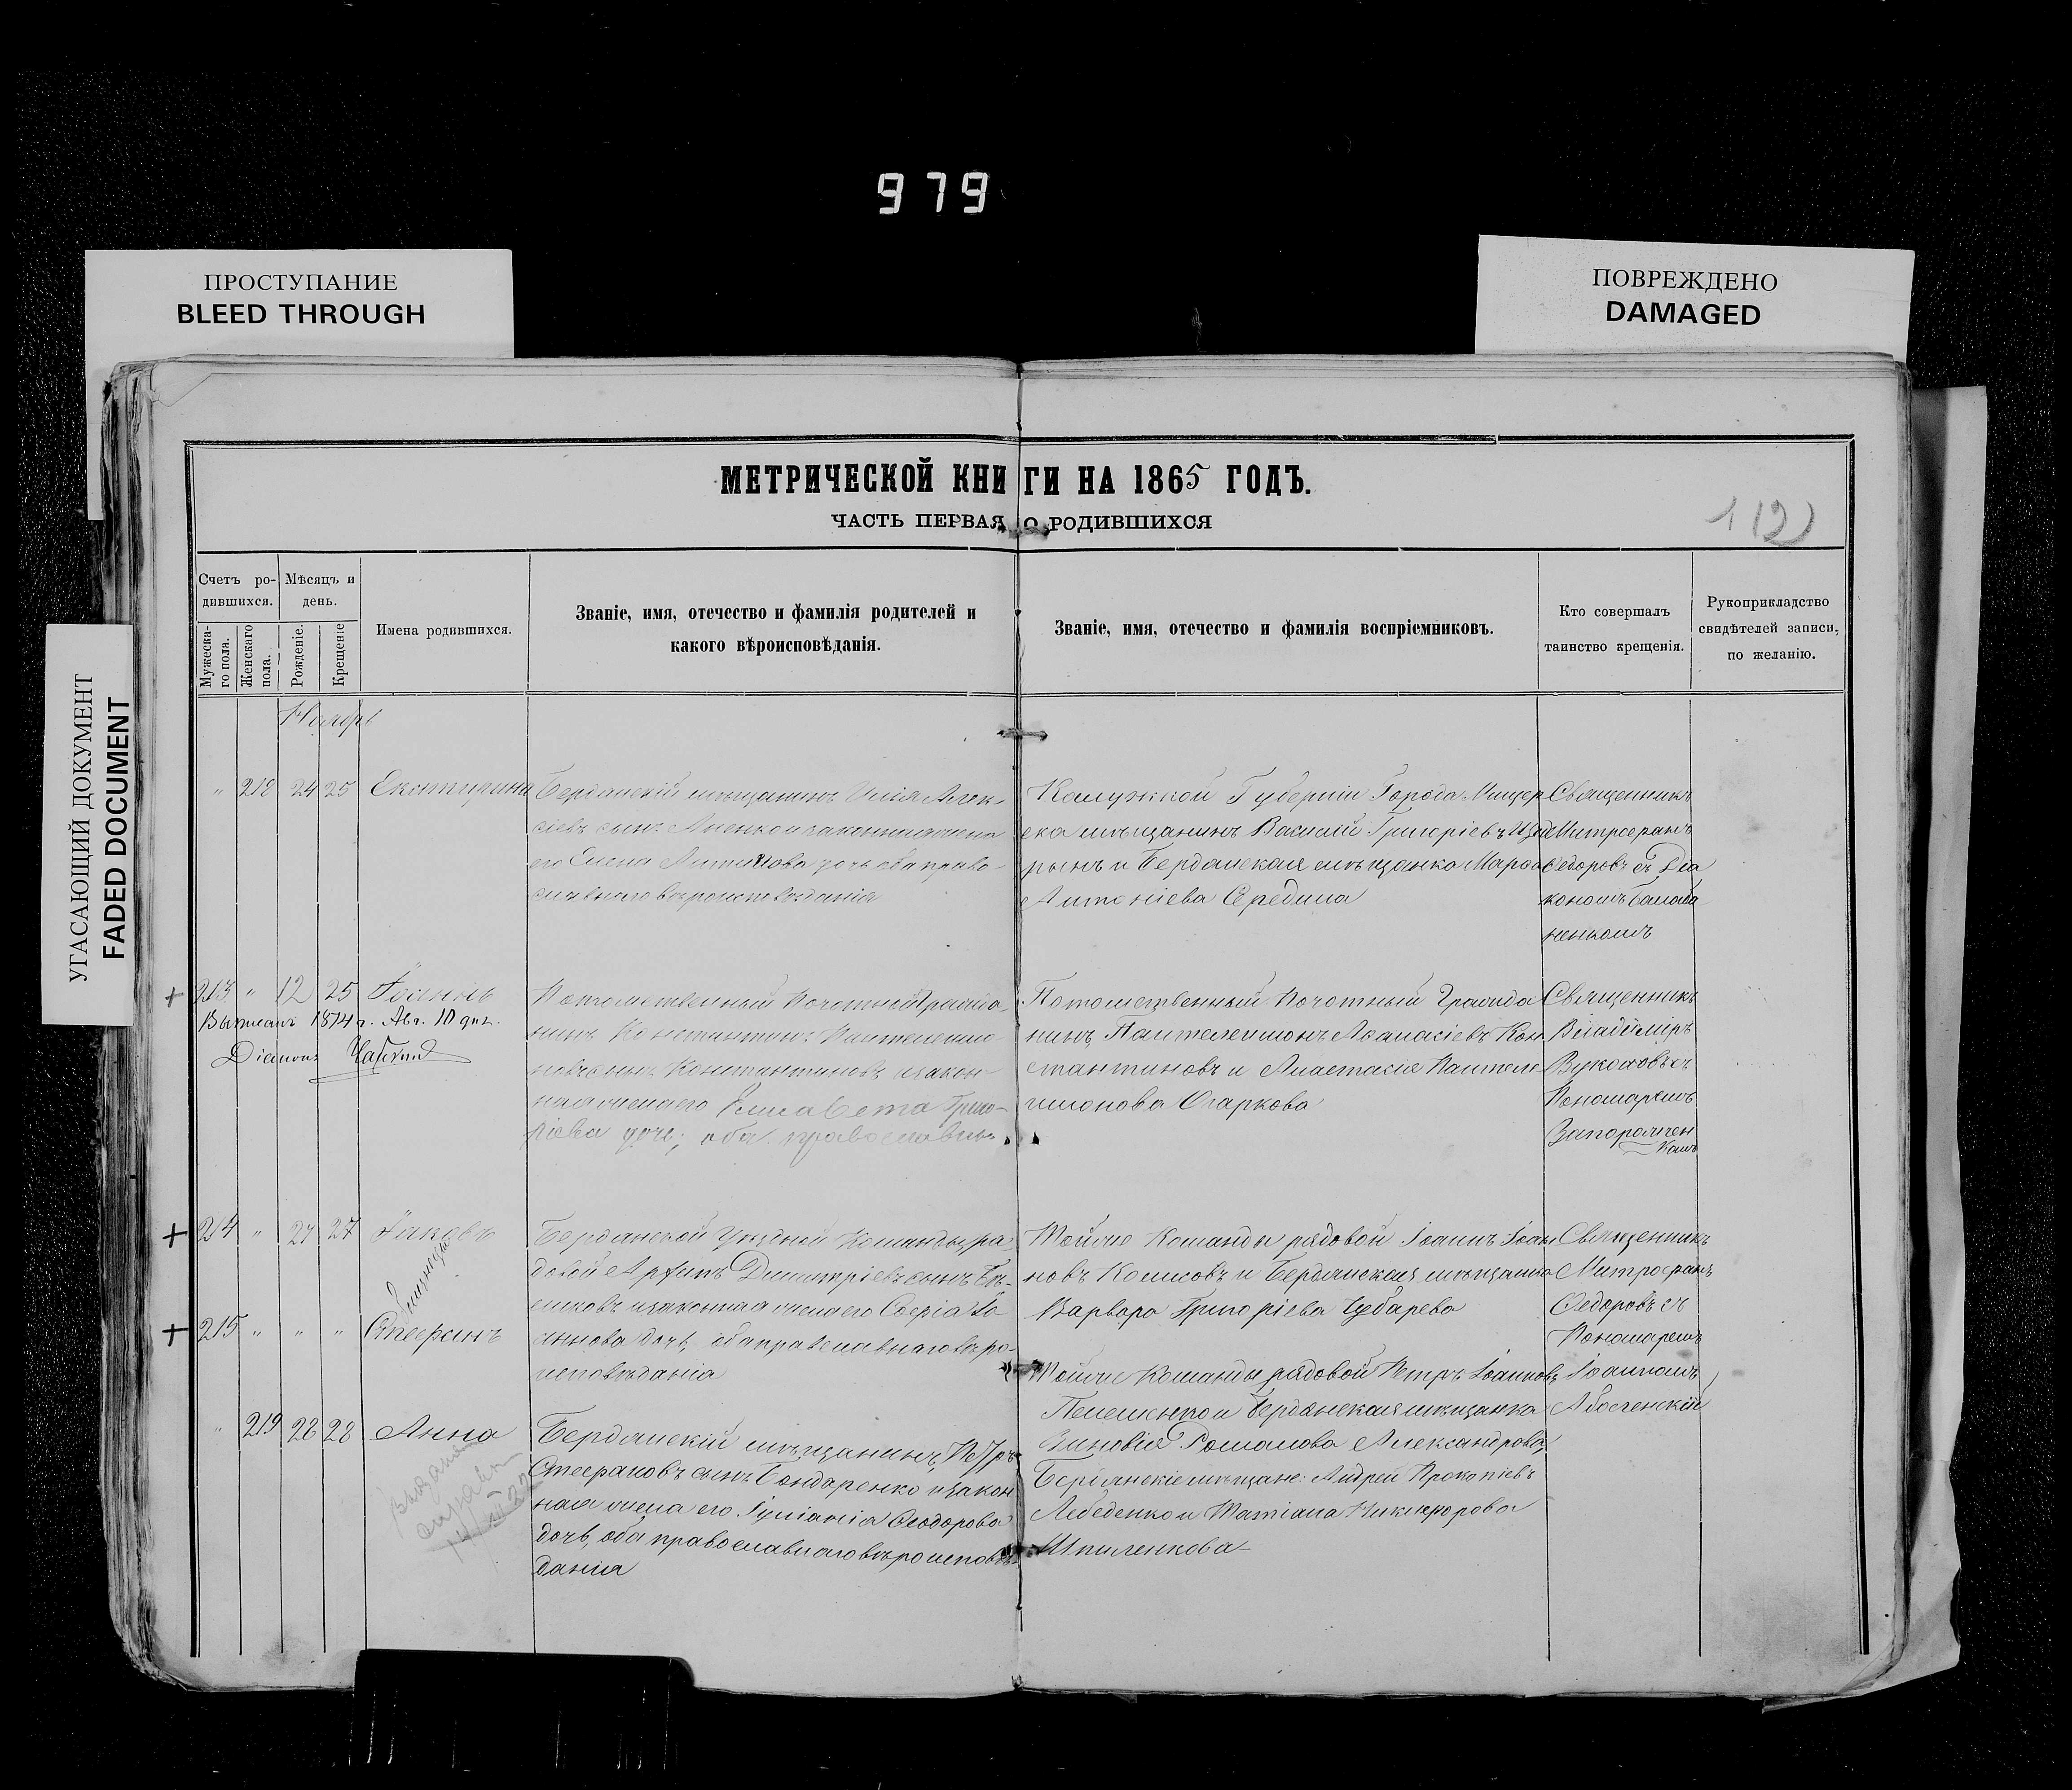 979
ПРОСТУПАНИЕ
BLEED THROUGH
ПОВРЕЖДЕНО
DAMAGED
УГАСАЮЩИЙ ДОКУМЕНТ
FADED DOCUMENT
МЕТРИЧЕСКОЙ КНИГИ НА 1865 ГОДЪ.
ЧАСТЬ ПЕРВАЯ О РОДИВШИХСЯ
112
Счетъ ро-
дившихся.
Мужеска-
го пола.
Женскаго
пола.
Мѣсяцъ и
день.
Рожденіе.
Крещеніе
Имена родившихся.
Званіе, имя, отечество и фамилія родителей и
какого вѣроисповѣданія.
Званіе, имя, отечество и фамилія воспріемниковъ.
Кто совершалъ
таинство крещенія.
Рукоприкладство
свидѣтелей записи,
по желанію.
Ноябрь
" 218 24 25 Екатерина
Бердянскій мѣщанинъ Илія Алек-
сіевъ сынъ и законная жена
его Елена дочь оба право-
славнаго вѣроисповѣданія
Калужской Губерніи Города Мещер
ска мѣщанинъ Василій Григоріевъ
рынъ и Бердянская мѣщанка Марѳа
Антоніева Середина
Священникъ
Митрофанъ
Ѳедоровъ съ Діа
кономъ Балаба
ненкомъ
+ 213 " 12 25 Іоаннъ
Выписанъ 1874 г. Авг. 10 дня.
Діаконъ
Потомственный Почотный Гражда-
нинъ Константинъ Пантелеимо
новъ сынъ Константиновъ и закон
ная жена его Елисавета Григо-
ріева дочь; оба православны
Потомственный Почотный Гражда
нинъ Пантелеимонъ Аѳанасіевъ Кон
стантиновъ и Анастасія Пантеле
имонова Огаркова
Священникъ
Владиміръ
Вуколовъ съ
Пономаремъ
Запорожчен
комъ
+ 214 " 27 27 Іаковъ
Близнецы
+ 215 " " " Стефанъ
Бердянской Уѣздной Команды ря
довой Димитріевъ сынъ
и законная жена его Софія Іо
аннова дочь, оба православнаго вѣро-
исповѣданія
Тойже Команды рядовой Іоаннъ Іоан
новъ и Бердянская мѣщанка
Варвара Григоріева Чубарева
Тойже Команды рядовой Петръ Іоанновъ
и Бердянская мѣщанка
Зиновія Романова Александрова
Священникъ
Митрофанъ
Ѳедоровъ съ
Пономаремъ
Іоанномъ
" 219 28 28 Анна
Бердянскій мѣщанинъ Петръ
Стефановъ сынъ Бондаренко и закон
ная жена его Іуліанія Ѳеодорова
дочь, оба православнаго вѣроисповѣ-
данія
Бердянскіе мѣщане: Андрей Прокопіевъ
Лебеденко и Татіана Никифорова
Шпиленкова